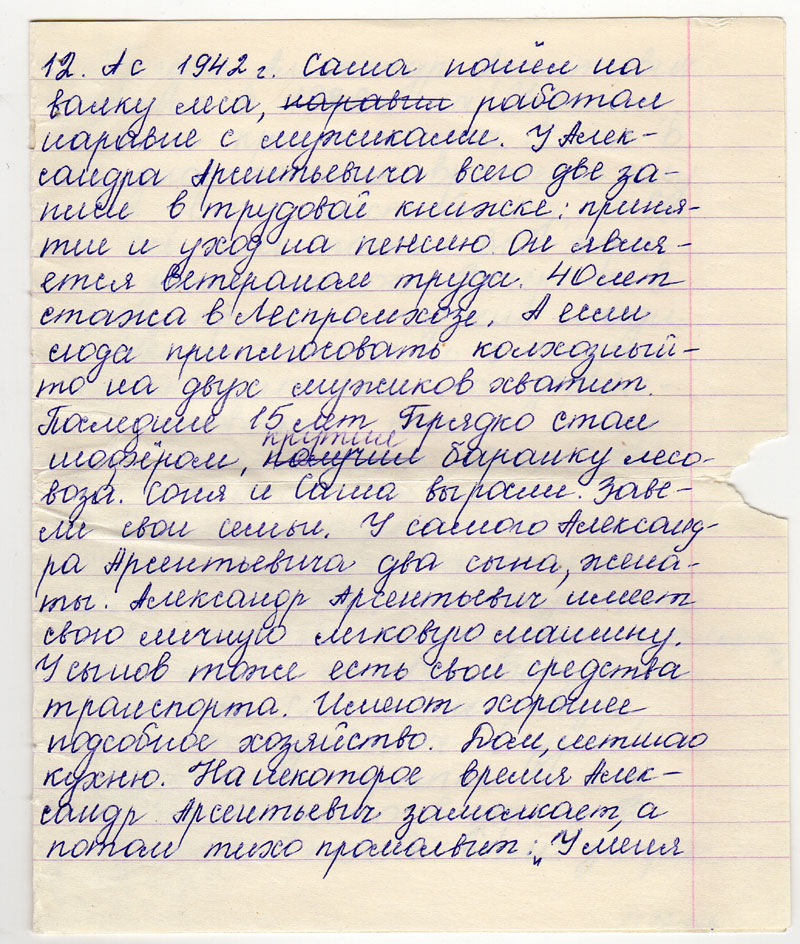 12. А с 1942 г. Саша пошёл на
валку леса, наравни работал
наравне с мужиками. У Алек-
сандра Арсентьевича всего две за-
писи в трудовой книжке: приня-
тие и уход на пенсию. Он явля-
ется ветераном труда. 40 лет
стажа в Леспромхозе. А если
сюда приплюсовать колхозный-
то на двух мужиков хватит.
Последние 15 лет Прядко стал
крутил
шофёром, получил баранку лесо-
воза. Соня и Саша выросли. Заве-
ли свои семьи. У самого Александ-
ра Арсентьевича два сына, жена-
ты. Александр Арсентьевич имеет
свою личную легковую машину.
У сынов тоже есть свои средства
транспорта. Имеют хорошее
подсобное хозяйство. Дом, летнюю
кухню. На некоторое время Алек-
сандр Арсентьевич замолкает, а
потом тихо промолвит: „У меня